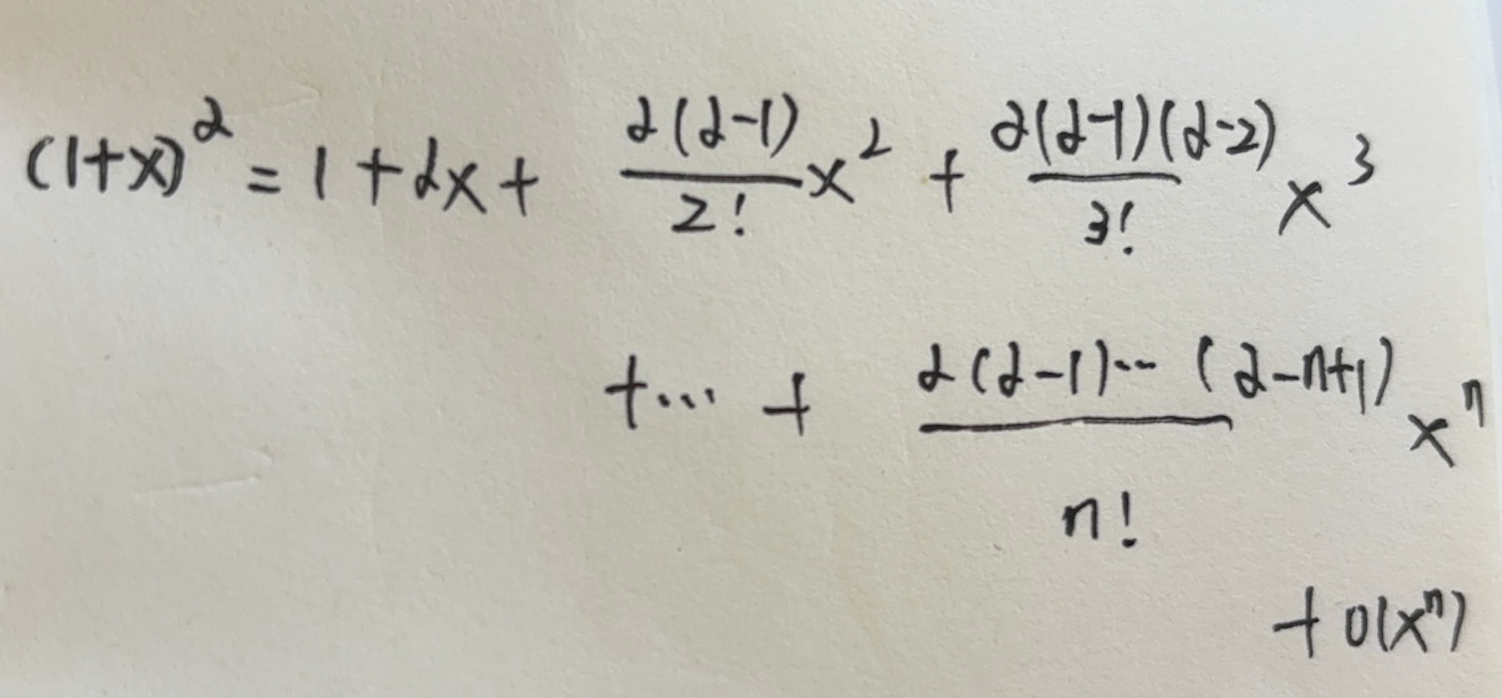 (1+x)^α = 1 + αx + \frac{α(α-1)}{2!}x^2 + \frac{α(α-1)(α-2)}{3!}x^3
+ ... + \frac{α(α-1)...(α-n+1)}{n!}x^n
+ o(x^n)